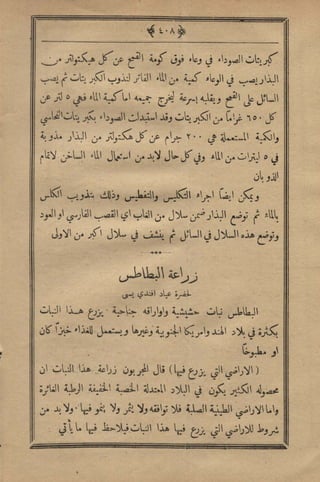 ﴿ ٤٠٨ ﴾
كبريتات الصوداء في وعاء فوق كومة القمح عن كل هيكتولتر من
البذار يصب في الوعاء كمية من الماء الفاتر لتذوب الكبريتات ثم يصب
السائل على القمح ويقلبه بسرعة ليخرج جميعه اما كمية الماء فهي ٥ لتر عن
كل ٦٥٠ غراماً من الكبريتات وقد استبدلت الصوداء بكبريتات النحاسي
والكمية المستعملة هي ٢٠٠ جرام عن كل هكتولتر من البذار مذوبة
في ٥ ليترات من الماء وفي كل حال لابد من استعمال الماء الساخن لاتمام
الذوبان
ويمكن ايضاً اجراء التكليس والتغطيس وذلك بتذويب الكلس
بالماء ثم توضع البذار ضمن سلال من الغاب اي القصب الفارسي او العود
وتوضع هذه السلال في السائل ثم ينشف في سلال اكبر من الاولى
زراعة البطاطس
لحضرة عياد افندي يسى
البطاطس نبات حشيشية واوراقه جناحية يزرع هذا النبات
بكثرة في بلاد الهند وامريكا الجنوبية وغيرها ويستعمل للغذاء خبزاً كان
او مطبوخاً
(الاراضي التي يزرع فيها) قال المجربون زراعة هذا النبات ان
محصوله الكثير يكون في البلاد المعتدلة الخصبة الخفيفة الرطبة الغائرة
واما الاراضي الطينية الصلبة فلا توافقه ولا يثمر ولا ينمو فيها ولا بد من
شروط للاراضي التي يزرع فيها هذا النبات فيلاحظ فيها ما يأتي